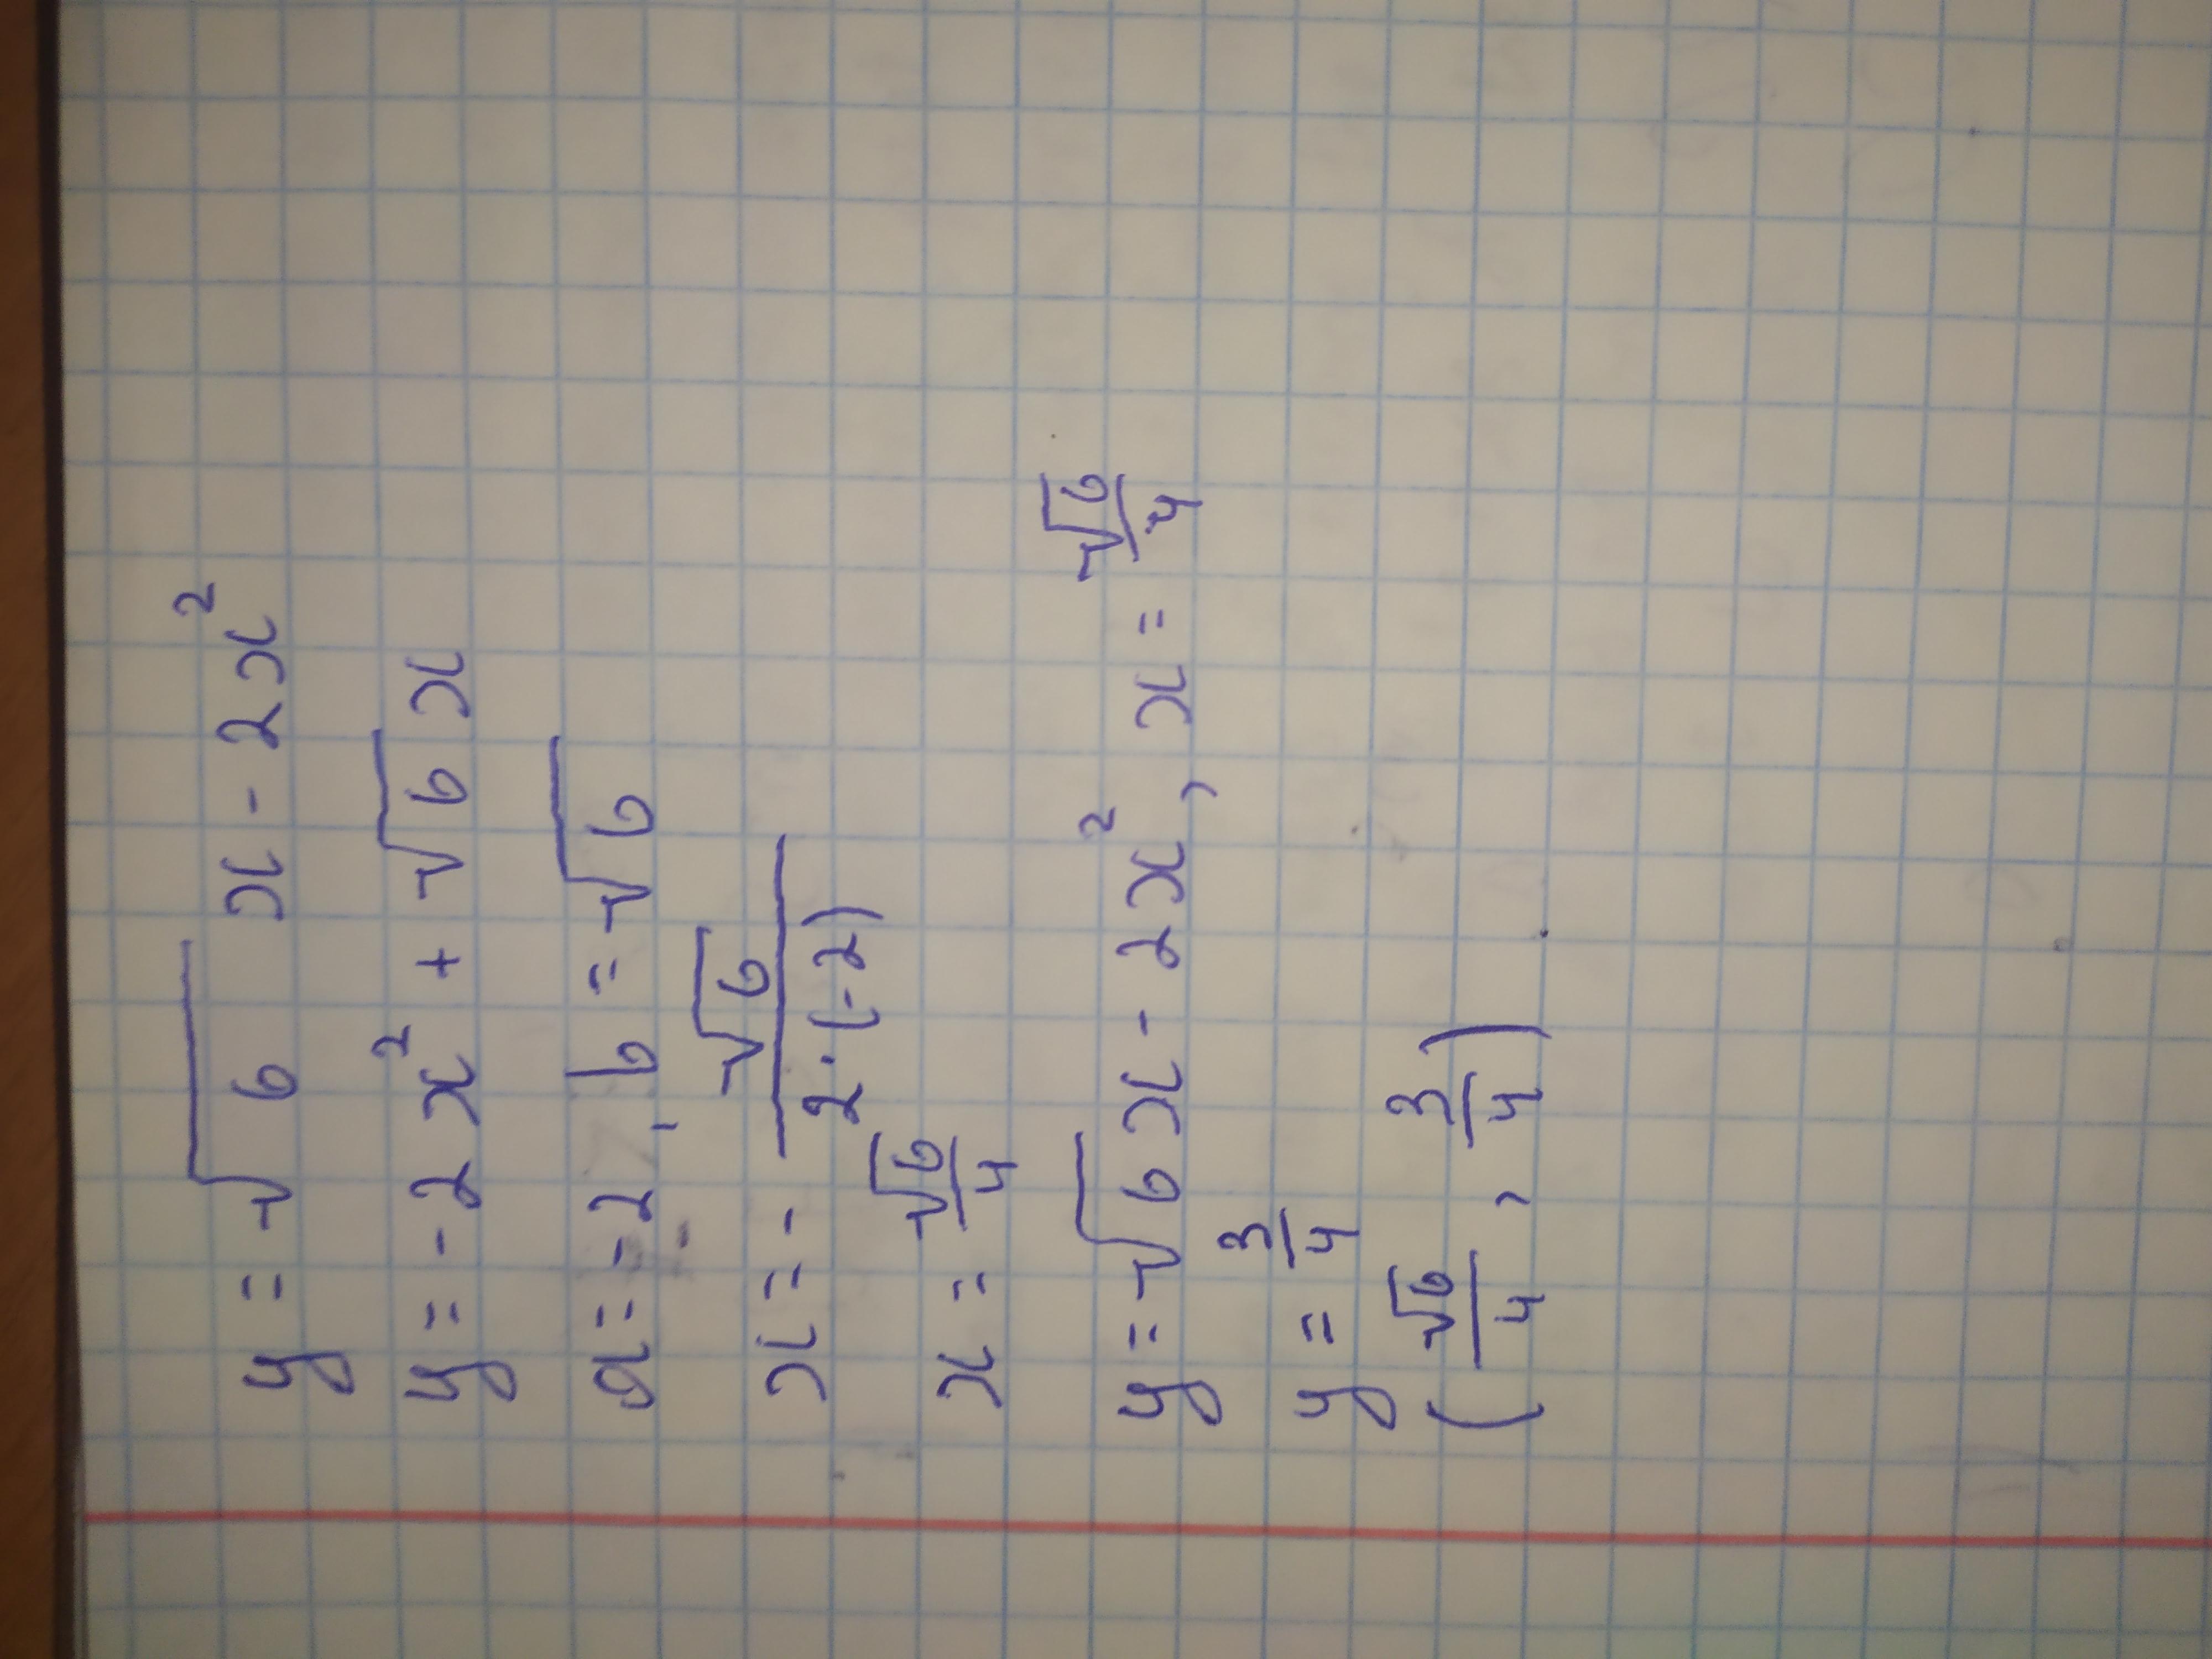 y = √6 x - 2x²
y = -2x² + √6 x
a = -2, b = √6
x = - √6/(2·(-2))
x = √6/4
y = √6 x - 2x², x = √6/4
y = 3/4
(√6/4, 3/4)